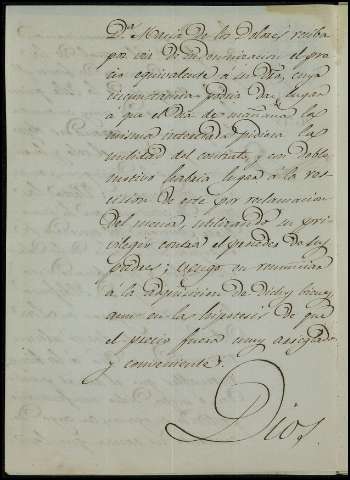 Dª Maria de los Dolores reciba
por via de indemnizacion el pre
cio equivalente a su dia, cuya
circunstancia podia dar lugar
á que el dia de mañana la
misma interesada pidiera la
nulidad del contrato, y con doble
motivo habria lugar á la res
cision de este por reclamacion
del menor, utilizando su pri
vilegio contra el de sus
padres; vengo en renunciar
á la adquisicion de dichos bienes
aun en las hipotesis de que
el precio fuera muy arreglado
y conveniente.
Dios